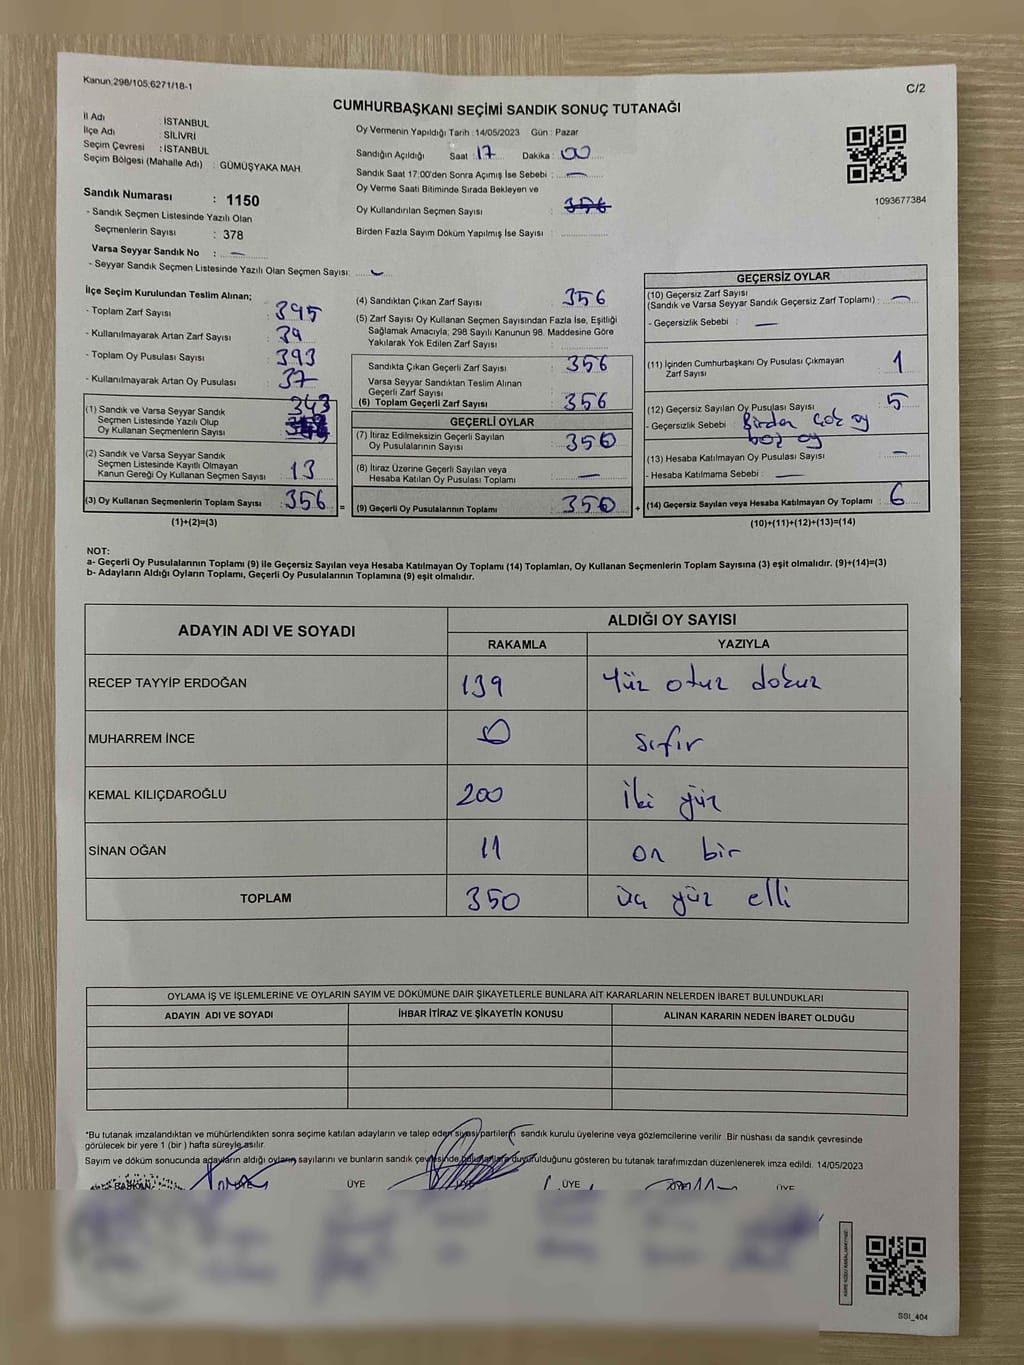 Kanun 298/105,6271/18-1
C/2
CUMHURBAŞKANI SEÇİMİ SANDIK SONUÇ TUTANAĞI
İl Adı : İSTANBUL
İlçe Adı : SİLİVRİ
Seçim Çevresi : İSTANBUL
Seçim Bölgesi (Mahalle Adı) : GÜMÜŞYAKA MAH.
Sandık Numarası : 1150
- Sandık Seçmen Listesinde Yazılı Olan
Seçmenlerin Sayısı : 378
Varsa Seyyar Sandık No : —
- Seyyar Sandık Seçmen Listesinde Yazılı Olan Seçmen Sayısı:
Oy Vermenin Yapıldığı Tarih : 14/05/2023 Gün : Pazar
Sandığın Açıldığı Saat : 17 Dakika : 00
Sandık Saat 17:00'den Sonra Açımış İse Sebebi : —
Oy Verme Saati Bitiminde Sırada Bekleyen ve
Oy Kullandırılan Seçmen Sayısı : 356
Birden Fazla Sayım Döküm Yapılmış İse Sayısı :
1093677384
İlçe Seçim Kurulundan Teslim Alınan;
- Toplam Zarf Sayısı : 395
- Kullanılmayarak Artan Zarf Sayısı : 39
- Toplam Oy Pusulası Sayısı : 393
- Kullanılmayarak Artan Oy Pusulası : 37
(1) Sandık ve Varsa Seyyar Sandık
Seçmen Listesinde Yazılı Olup
Oy Kullanan Seçmenlerin Sayısı : 343
(2) Sandık ve Varsa Seyyar Sandık
Seçmen Listesinde Kayıtlı Olmayan
Kanun Gereği Oy Kullanan Seçmen Sayısı : 13
(3) Oy Kullanan Seçmenlerin Toplam Sayısı : 356
(1)+(2)=(3)
(4) Sandıktan Çıkan Zarf Sayısı : 356
(5) Zarf Sayısı Oy Kullanan Seçmen Sayısından Fazla İse, Eşitliği
Sağlamak Amacıyla; 298 Sayılı Kanunun 98. Maddesine Göre
Yakılarak Yok Edilen Zarf Sayısı :
Sandıkta Çıkan Geçerli Zarf Sayısı : 356
Varsa Seyyar Sandıktan Teslim Alınan
Geçerli Zarf Sayısı :
(6) Toplam Geçerli Zarf Sayısı : 356
GEÇERLİ OYLAR
(7) İtiraz Edilmeksizin Geçerli Sayılan
Oy Pusulalarının Sayısı : 350
(8) İtiraz Üzerine Geçerli Sayılan veya
Hesaba Katılan Oy Pusulası Toplamı : —
= (9) Geçerli Oy Pusulalarının Toplamı : 350 +
GEÇERSİZ OYLAR
(10) Geçersiz Zarf Sayısı
(Sandık ve Varsa Seyyar Sandık Geçersiz Zarf Toplamı) : —
- Geçersizlik Sebebi : —
(11) İçinden Cumhurbaşkanı Oy Pusulası Çıkmayan
Zarf Sayısı : 1
(12) Geçersiz Sayılan Oy Pusulası Sayısı : 5
- Geçersizlik Sebebi : Birden çok oy
boş oy
(13) Hesaba Katılmayan Oy Pusulası Sayısı : —
- Hesaba Katılmama Sebebi : —
(14) Geçersiz Sayılan veya Hesaba Katılmayan Oy Toplamı : 6
(10)+(11)+(12)+(13)=(14)
NOT:
a- Geçerli Oy Pusulalarının Toplamı (9) ile Geçersiz Sayılan veya Hesaba Katılmayan Oy Toplamı (14) Toplamları, Oy Kullanan Seçmenlerin Toplam Sayısına (3) eşit olmalıdır. (9)+(14)=(3)
b- Adayların Aldığı Oyların Toplamı, Geçerli Oy Pusulalarının Toplamına (9) eşit olmalıdır.
ADAYIN ADI VE SOYADI
ALDIĞI OY SAYISI
RAKAMLA YAZIYLA
RECEP TAYYİP ERDOĞAN 139 Yüz otuz dokuz
MUHARREM İNCE 0 sıfır
KEMAL KILIÇDAROĞLU 200 iki yüz
SİNAN OĞAN 11 on bir
TOPLAM 350 üç yüz elli
OYLAMA İŞ VE İŞLEMLERİNE VE OYLARIN SAYIM VE DÖKÜMÜNE DAİR ŞİKAYETLERLE BUNLARA AİT KARARLARIN NELERDEN İBARET BULUNDUKLARI
ADAYIN ADI VE SOYADI İHBAR İTİRAZ VE ŞİKAYETİN KONUSU ALINAN KARARIN NEDEN İBARET OLDUĞU
*Bu tutanak imzalandıktan ve mühürlendikten sonra seçime katılan adayların ve talep eden siyasi partilerin sandık kurulu üyelerine veya gözlemcilerine verilir. Bir nüshası da sandık çevresinde
görülecek bir yere 1 (bir ) hafta süreyle asılır.
Sayım ve döküm sonucunda adayların aldığı oyların sayılarını ve bunların sandık çevresinde bulunanlara duyurulduğunu gösteren bu tutanak tarafımızdan düzenlenerek imza edildi. 14/05/2023
BAŞKAN ÜYE ÜYE ÜYE ÜYE ÜYE
SSI_404